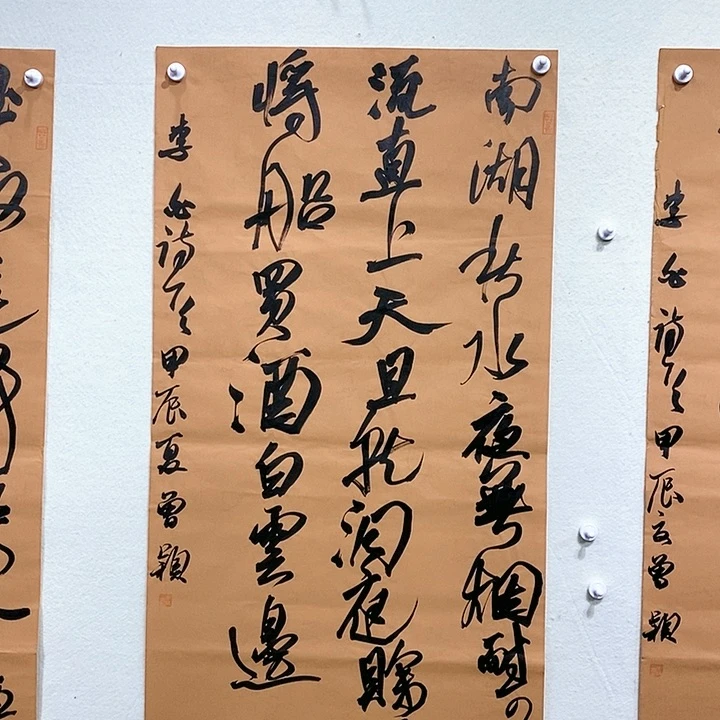 李白詩一首甲辰夏曾穎
南湖秋水夜無烟耐
流直上天且就洞庭賒
將船買酒白雲邊
李白詩一首甲辰夏曾穎